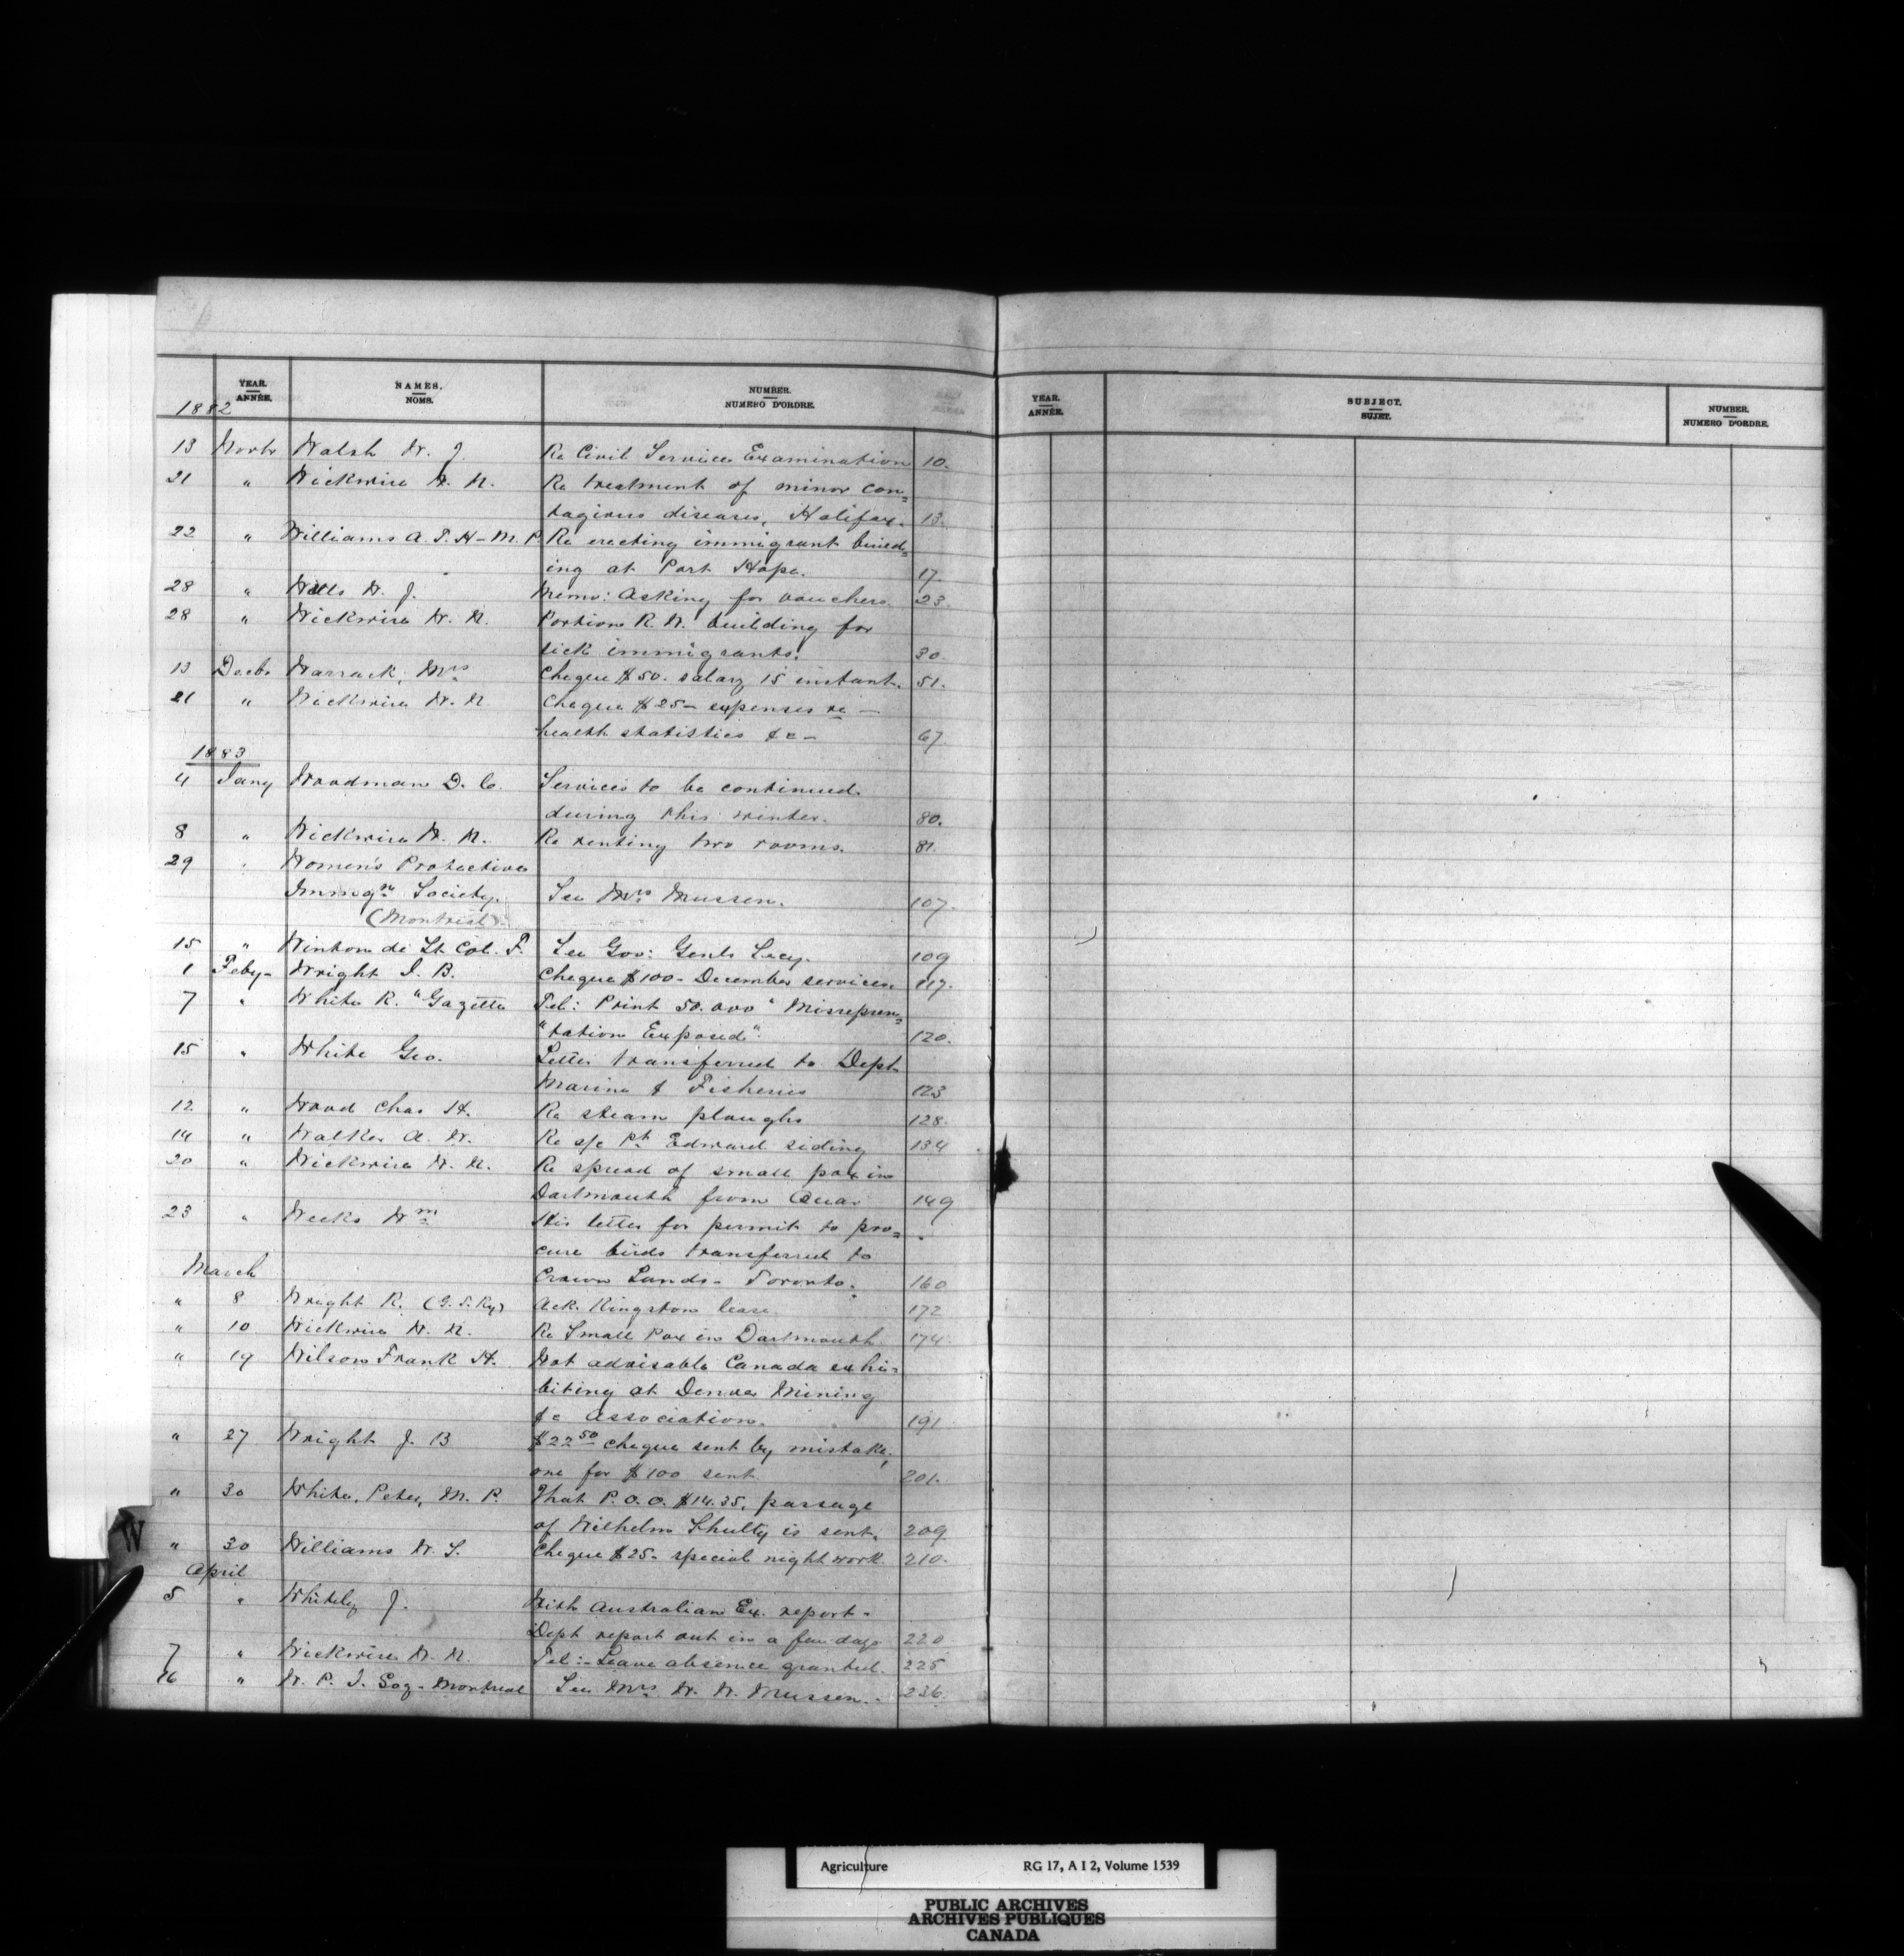 YEAR. NAMES. NUMBER.
ANNÉE. NOMS. NUMERO D'ORDRE.
1882
13 Novbr Walsh W. J. Re Civil Service Examination 10.
21 " Wickwire W. N. Re treatment of minor con=
tagious diseases, Halifax. 13.
22 " Williams A. T. H - M. P. Re erecting immigrant build=
ing at Port Hope. 17.
28 " Wills W. J. Memo: Asking for vouchers 23.
28 " Wickwire W. N. Portion R. W. building for
sick immigrants. 30.
13 Decbr Warrack, Mrs Cheque $50. salary 15 instant. 51.
21 " Wickwire W. N. Cheque $25 - expenses re -
health statistics &c - 67.
1883
4 Jany Woodman D. C. Services to be continued
during this winter. 80.
8 " Wickwire W. N. Re renting two rooms. 81.
29 " Women's Protective
Immign Society. See Mrs Mussen. 107.
(Montreal).
15 " Winton de Lt Col. F. See Gov: Genls Secy. 109
1 Feby - Wright J. B. Cheque $100 - December services. 117.
7 " White R. "Gazette Tel: Print 50.000 "Misrepresen=
"tation Exposed". 120.
15 " White Geo. Letter transferred to Dept
Marine & Fisheries 123
12 " Wood Chas H. Re steam ploughs 128.
14 " Walker A. W. Re a/c Pt Edward siding 134
20 " Wickwire W. N. Re spread of small pox in
Dartmouth from Quar 149
23 " Weeks Wm His letter for permit to pro=
cure birds transferred to
March Crown Lands - Toronto. 160
" 8 Wright R. (G. T. Ry) Ack. Kingston lease 172
" 10 Wickwire W. N. Re Small Pox in Dartmouth 174.
" 19 Wilson Frank H. Not advisable Canada exhi=
biting at Denver Mining
&c Association. 191
" 27 Wright J. B $22 50 cheque sent by mistake,
one for $100 sent 201.
" 30 White, Peter, M. P. That P. O. O. $14.35, passage
of Wilhelm Shulty is sent. 209
" 30 Williams W. S. Cheque $25 - special night work. 210.
April
5 " Whitely J. With Australian Ex. report -
Dept report out in a few days 220
7 " Wickwire W. N. Tel: - Leave absence granted. 225
16 " W. P. I. Soy - Montreal See Mrs W. W. Mussen. - 236.
W
YEAR. SUBJECT. NUMBER.
ANNÉE. SUJET. NUMERO D'ORDRE.
Agriculture RG 17, A I 2, Volume 1539
PUBLIC ARCHIVES
ARCHIVES PUBLIQUES
CANADA